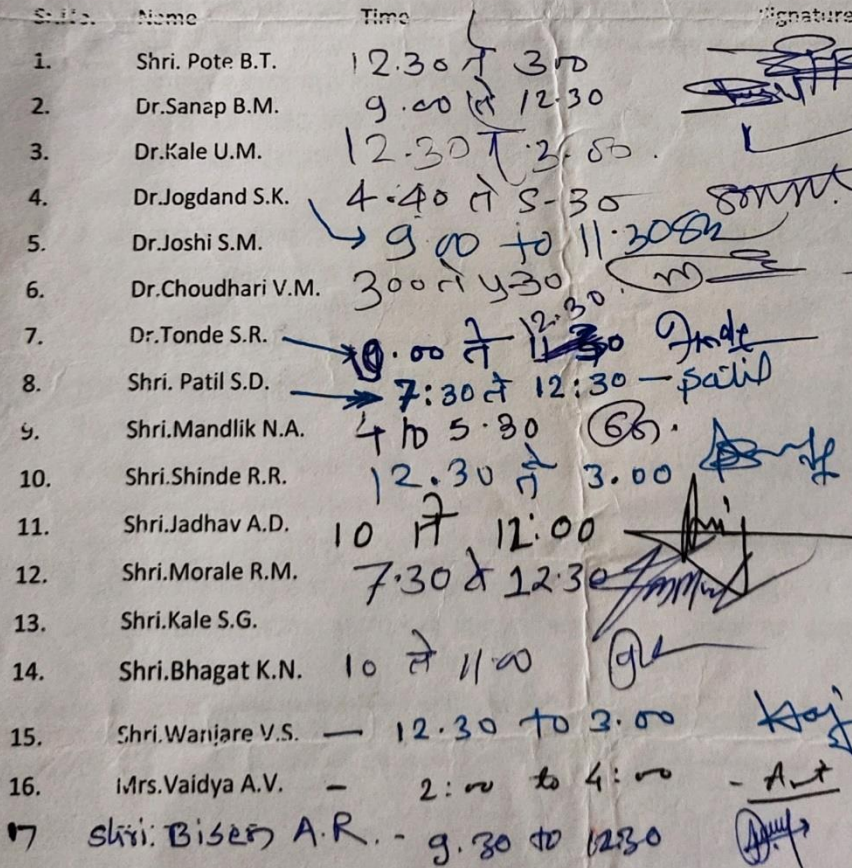 Sr.No. Name Time Signature
1. Shri. Pote B.T. 12.30 ते 3.00
2. Dr.Sanap B.M. 9.00 ते 12.30
3. Dr.Kale U.M. 12.30 ते 3.00.
4. Dr.Jogdand S.K. 4.40 ते 5-30
5. Dr.Joshi S.M. 9.00 to 11.30
6. Dr.Choudhari V.M. 300 ते 4-30
7. Dr.Tonde S.R. 9.00 ते 12.30 Tonde
8. Shri. Patil S.D. 7:30 ते 12:30 - Patil
9. Shri.Mandlik N.A. 4 to 5.30
10. Shri.Shinde R.R. 12.30 ते 3.00
11. Shri.Jadhav A.D. 10 ते 12:00
12. Shri.Morale R.M. 7.30 ते 12.30
13. Shri.Kale S.G.
14. Shri.Bhagat K.N. 10 ते 11.00
15. Shri.Wanjare V.S. - 12.30 to 3.00
16. Mrs.Vaidya A.V. - 2:00 to 4:00 -
17 Shri. Bisen A.R. - 9.30 to 12.30